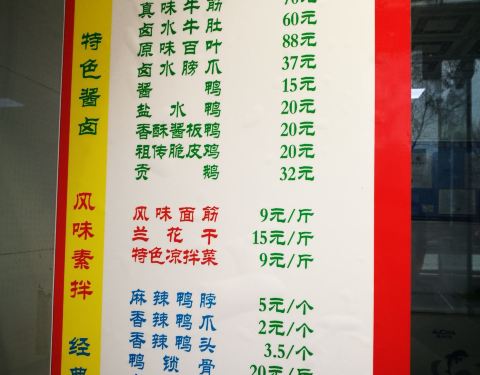 特色酱卤
真味牛筋 70元
卤水牛肚 60元
原味百叶 88元
卤水膀爪 37元
酱鸭 15元
盐水鸭 20元
香酥酱板鸭 20元
祖传脆皮鸡 20元
贡鹅 32元
风味素拌
风味面筋 9元/斤
兰花干 15元/斤
特色凉拌菜 9元/斤
经典
麻辣鸭脖 5元/个
香辣鸭爪 2元/个
香辣鸭头 3.5/个
鸭锁骨 20元/斤